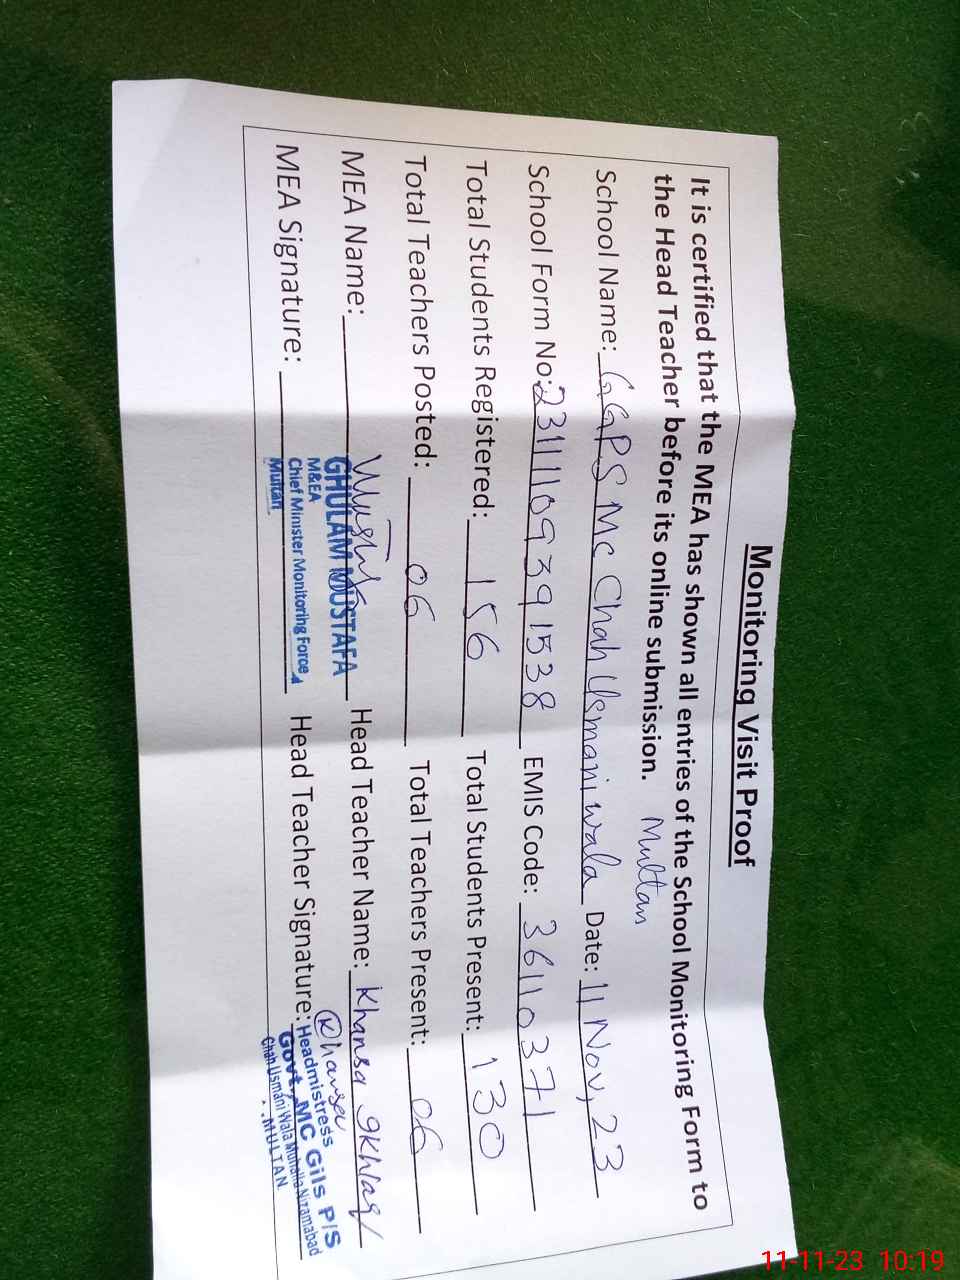 Monitoring Visit Proof
It is certified that the MEA has shown all entries of the School Monitoring Form to
the Head Teacher before its online submission.
Multan
School Name: GGPS MC Chah Usmani wala Date: 11 Nov, 23
School Form No: 23111109391538 EMIS Code: 36110371
Total Students Registered: 156 Total Students Present: 130
Total Teachers Posted: 06 Total Teachers Present: 06
MEA Name: Head Teacher Name: Khansa
GHULAM MUSTAFA
M&EA
Chief Minister Monitoring Force
Multan
MEA Signature: Head Teacher Signature: Khansa
Headmistress
Govt, MC Gils P/S
Chah Usmani Wala Muhalla Nizamabad
MULTAN.
11-11-23 10:19